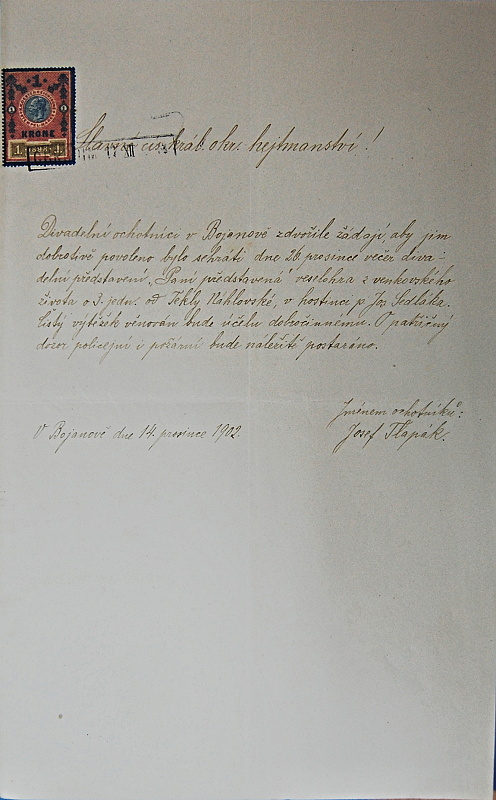 1
KRONE
1 1898 1
Slavné cís. král. okr. hejtmanství!
Divadelní ochotníci v Bojanově zdvořile žádají, aby jim
dobrotivě povoleno bylo sehráti dne 26. prosince večer diva-
delní představení „Paní představená" veselohra z venkovského
života o 3. jedn. od Tekly Náhlovské, v hostinci p. Jos. Sedláka.
Čistý výtěžek věnován bude účelu dobročinnému. O patřičný
dozor policejní i požární bude náležitě postaráno.
Jménem ochotníků:
V Bojanově dne 14. prosince 1902.
Josef Tlapák.